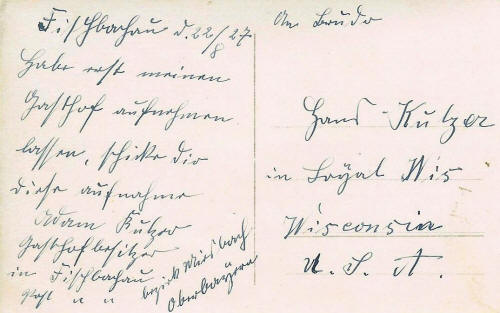 Fischbachau d. 22/8 27
Habe erst meinen
Gasthof aufnehmen
lassen, schicke dir
diese aufnahme
Adam Kutzer
Gasthofbesitzer
in Fischbachau
Post " "
bezirk Miesbach
Oberbayern
An Bruder
Hans Kutzer
in Loyal Wis
Wisconsin
U. S. A.